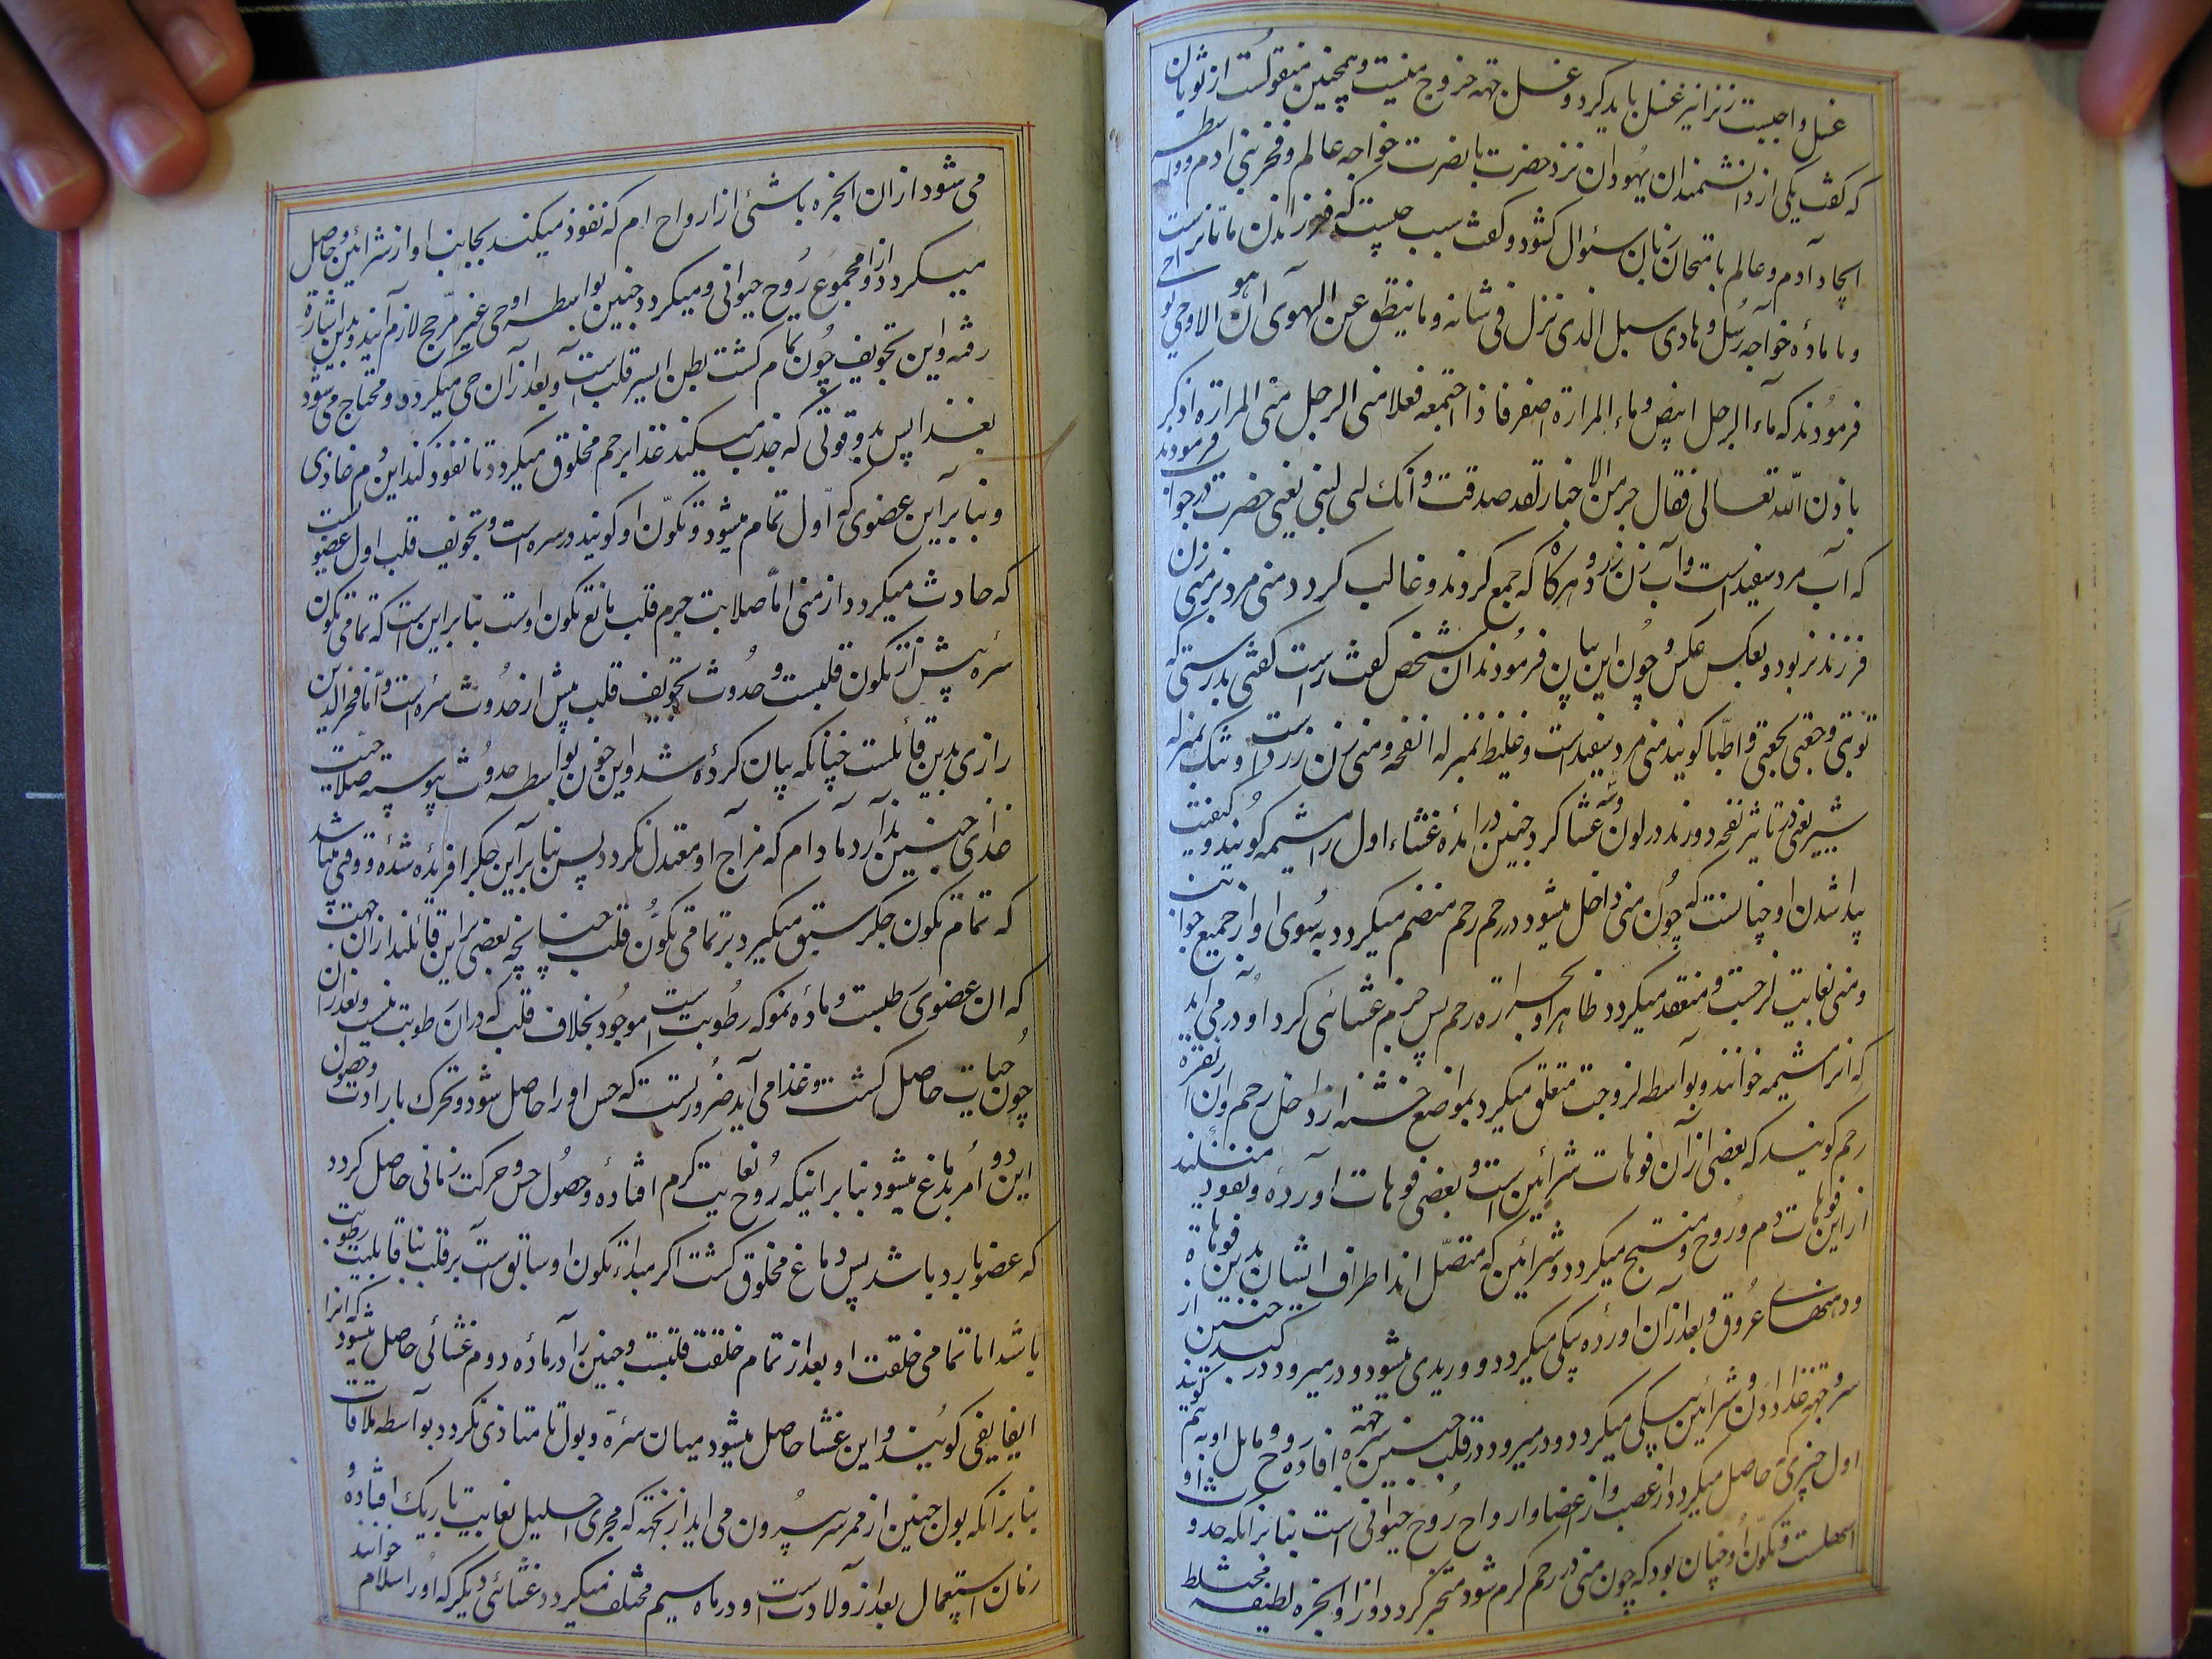 غسل واجبست زنرا نیز غسل باید کرد و غسل جهته خروج منیست و همچنین منقولست از ثوبان
که کفت یکی از دانشمندان یهودان نزد حضرت با نصرت خواجه عالم و فخر بنی ادم و واسطه
ایجاد آدم و عالم بامتحان زبان سئوال کشود و کفت سبب چیست که فرزندان ما نرست
و ما ماده خواجه رسل و هادی سبل الذی نزل فی شانه و ما ینطق عن الهوی ان هو الا وحی یوحی
فرمودند که ماء الرجل ابیض و ماء المراة اصفر فاذا اجتمعه فعلا منی الرجل منی المراة اذکر
باذن الله تعالی فقال حبر من الاخبار لقد صدقت و انک لنبی یعنی حضرت در جواب فرمودند
که آب مرد سفید است و آب زن زرد و هرکاه که جمع کردند و غالب کردد منی مرد بر منی زن
فرزند نر بود و بعکس عکس و چون این بیان فرمودند ان شخص کفت راست کفتی بدرستی که
تو نبی و حقی بحقی و اطبا کویند منی مرد سفید است و غلیظ بمنزله انفحه و منی زن زرد است و تنک بمنزله
شیر یعنی در تاثیر نفحه دورند در لون و سه غشا کرد جنین در امده غشاء اول را مشیمه کویند و کیفیت
پیدا شدن او چنانست که چون منی داخل میشود در رحم رحم منضم میکردد به سوی او از جمیع جوانب
و منی بغایت لزجست و منعقد میکردد ظاهر او بحرارة رحم پس چرم غشائی کرد او در می اید
که انرا مشیمه خوانند و بواسطه لزوجت متعلق میکردد بمواضع خشنه از داخل رحم و ان را نقره
رحم کویند که بعضی از آن فوهات شرائین است و بعضی فوهات آورده و نفوذ
از این فوهات دم و روح و منتسج میکردد و شرائین که متصل اند اطراف ایشان بدین فوهات
عروق و بعد از آن اورده یکی میکردد و وریدی میشود و در میرود در کبد جنین از
سره جهته غذا دادن و شرائین یکی میکردد و در میرود در قلب جنین جهته افاده روح و
اول چیزی که حاصل میکردد از عصب و از اعضا و ارواح روح حیوانی است بنابر انکه حدوث او
اسهلست و تکون او چنان بود که چون منی در رحم کرم شود متبخر کردد و از او ابخره لطیفه مختلط
می شود از ان ابخره باشئی از ارواح ام که نفوذ میکند بجانب او از شرائین و حاصل
میکردد از مجموع روح حیوانی و میکردد جنین بواسطه او حی غیر مرجح لازم آید و بدین اشارة
رفته و این تجویف چون تمام کشت بطن ایسر قلب است و بعد از آن حی میکردد و محتاج می شود
بغذا پس بدو قوتی که جذب میکند غذا برحم مخلوق میکردد تا نفوذ کند این دم غاذی
و بنا برآین عضوی که اول تمام میشود و تکون او کویند در سره است و تجویف قلب اول عضویست
که حادث میکردد از منی اما صلابت جرم قلب مانع تکون اوست بنابر این است که تمامی تکون
سره پیش از تکون قلبست و حدوث تجویف قلب پیش از حدوث سره است و اما فخرالدین
رازی بدین قائلست چنانکه بیان کرده شد و این خون بواسطه حدوث پیوسته صلاحیت
غذای جنین ندارد مادام که مزاج او معتدل نکردد پس بنا برآین جکر افریده شده و وقتی میباشد
که تمام تکون جکر سبق میکیرد بر تمامی تکون قلب چنانچه بعضی براین قائلند از ان جهت
که ان عضوی رطبست و ماده نمو که رطوبت است موجود بخلاف قلب که در ان رطوبت نیست و بعد از ان
چون حیات حاصل کشت و غذا می آید ضرورتست که حس او را حاصل شود و تحرک بارادت و حصول
این دو امر بدماغ میشود بنابر اینکه روح بغایت کرم افتاده و حصول حس و حرکت زمانی حاصل کردد
که عضو بارد باشد پس دماغ مخلوق کشت اکر مبداء تکون او سابق است بر قلب بنا قابلیت رطوبت
باشد اما تمامی خلقت او بعد از تمام خلقت قلبست و جنین را در ماده دوم غشائی حاصل میشود که انرا
ایفایفی کویند و این غشا حاصل میشود میان سره و بول تا متاذی نکردد بواسطه ملاقات
بنابر انکه بول جنین از ممر سره بیرون می اید از بجهته که مجری احلیل بغایت باریک افتاده و
زمان استعمال بعد از ولادت است و در ماه سیم مختلف میکردد غشائی دیکر که او را اسلام خوانند